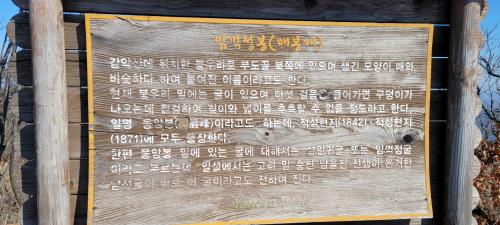 임꺽정봉(매봉재)
감악산에 위치한 봉우리로 부도골 북쪽에 있으며 생긴 모양이 매와
비슷하다 하여 붙여진 이름이라고도 한다.
현재 봉우리 밑에는 굴이 있으며 다섯 걸음 들어가면 구덩이가
나오는데 컴컴하여 깊이와 넓이를 추측할 수 없을 정도라고 한다.
일명 응암봉( 巖峰)이라고도 하는데, 적성현지(1842)·적성현지
(1871)에 모두 등장한다.
한편 응암봉 밑에 있는 굴에 대해서는 설인귀굴 또는 임꺽정굴
이라고 부르는데, 일설에서는 고려 말 충신 남을진 선생이 은거한
남선굴이 바로 이 굴이라고도 전하여 진다.